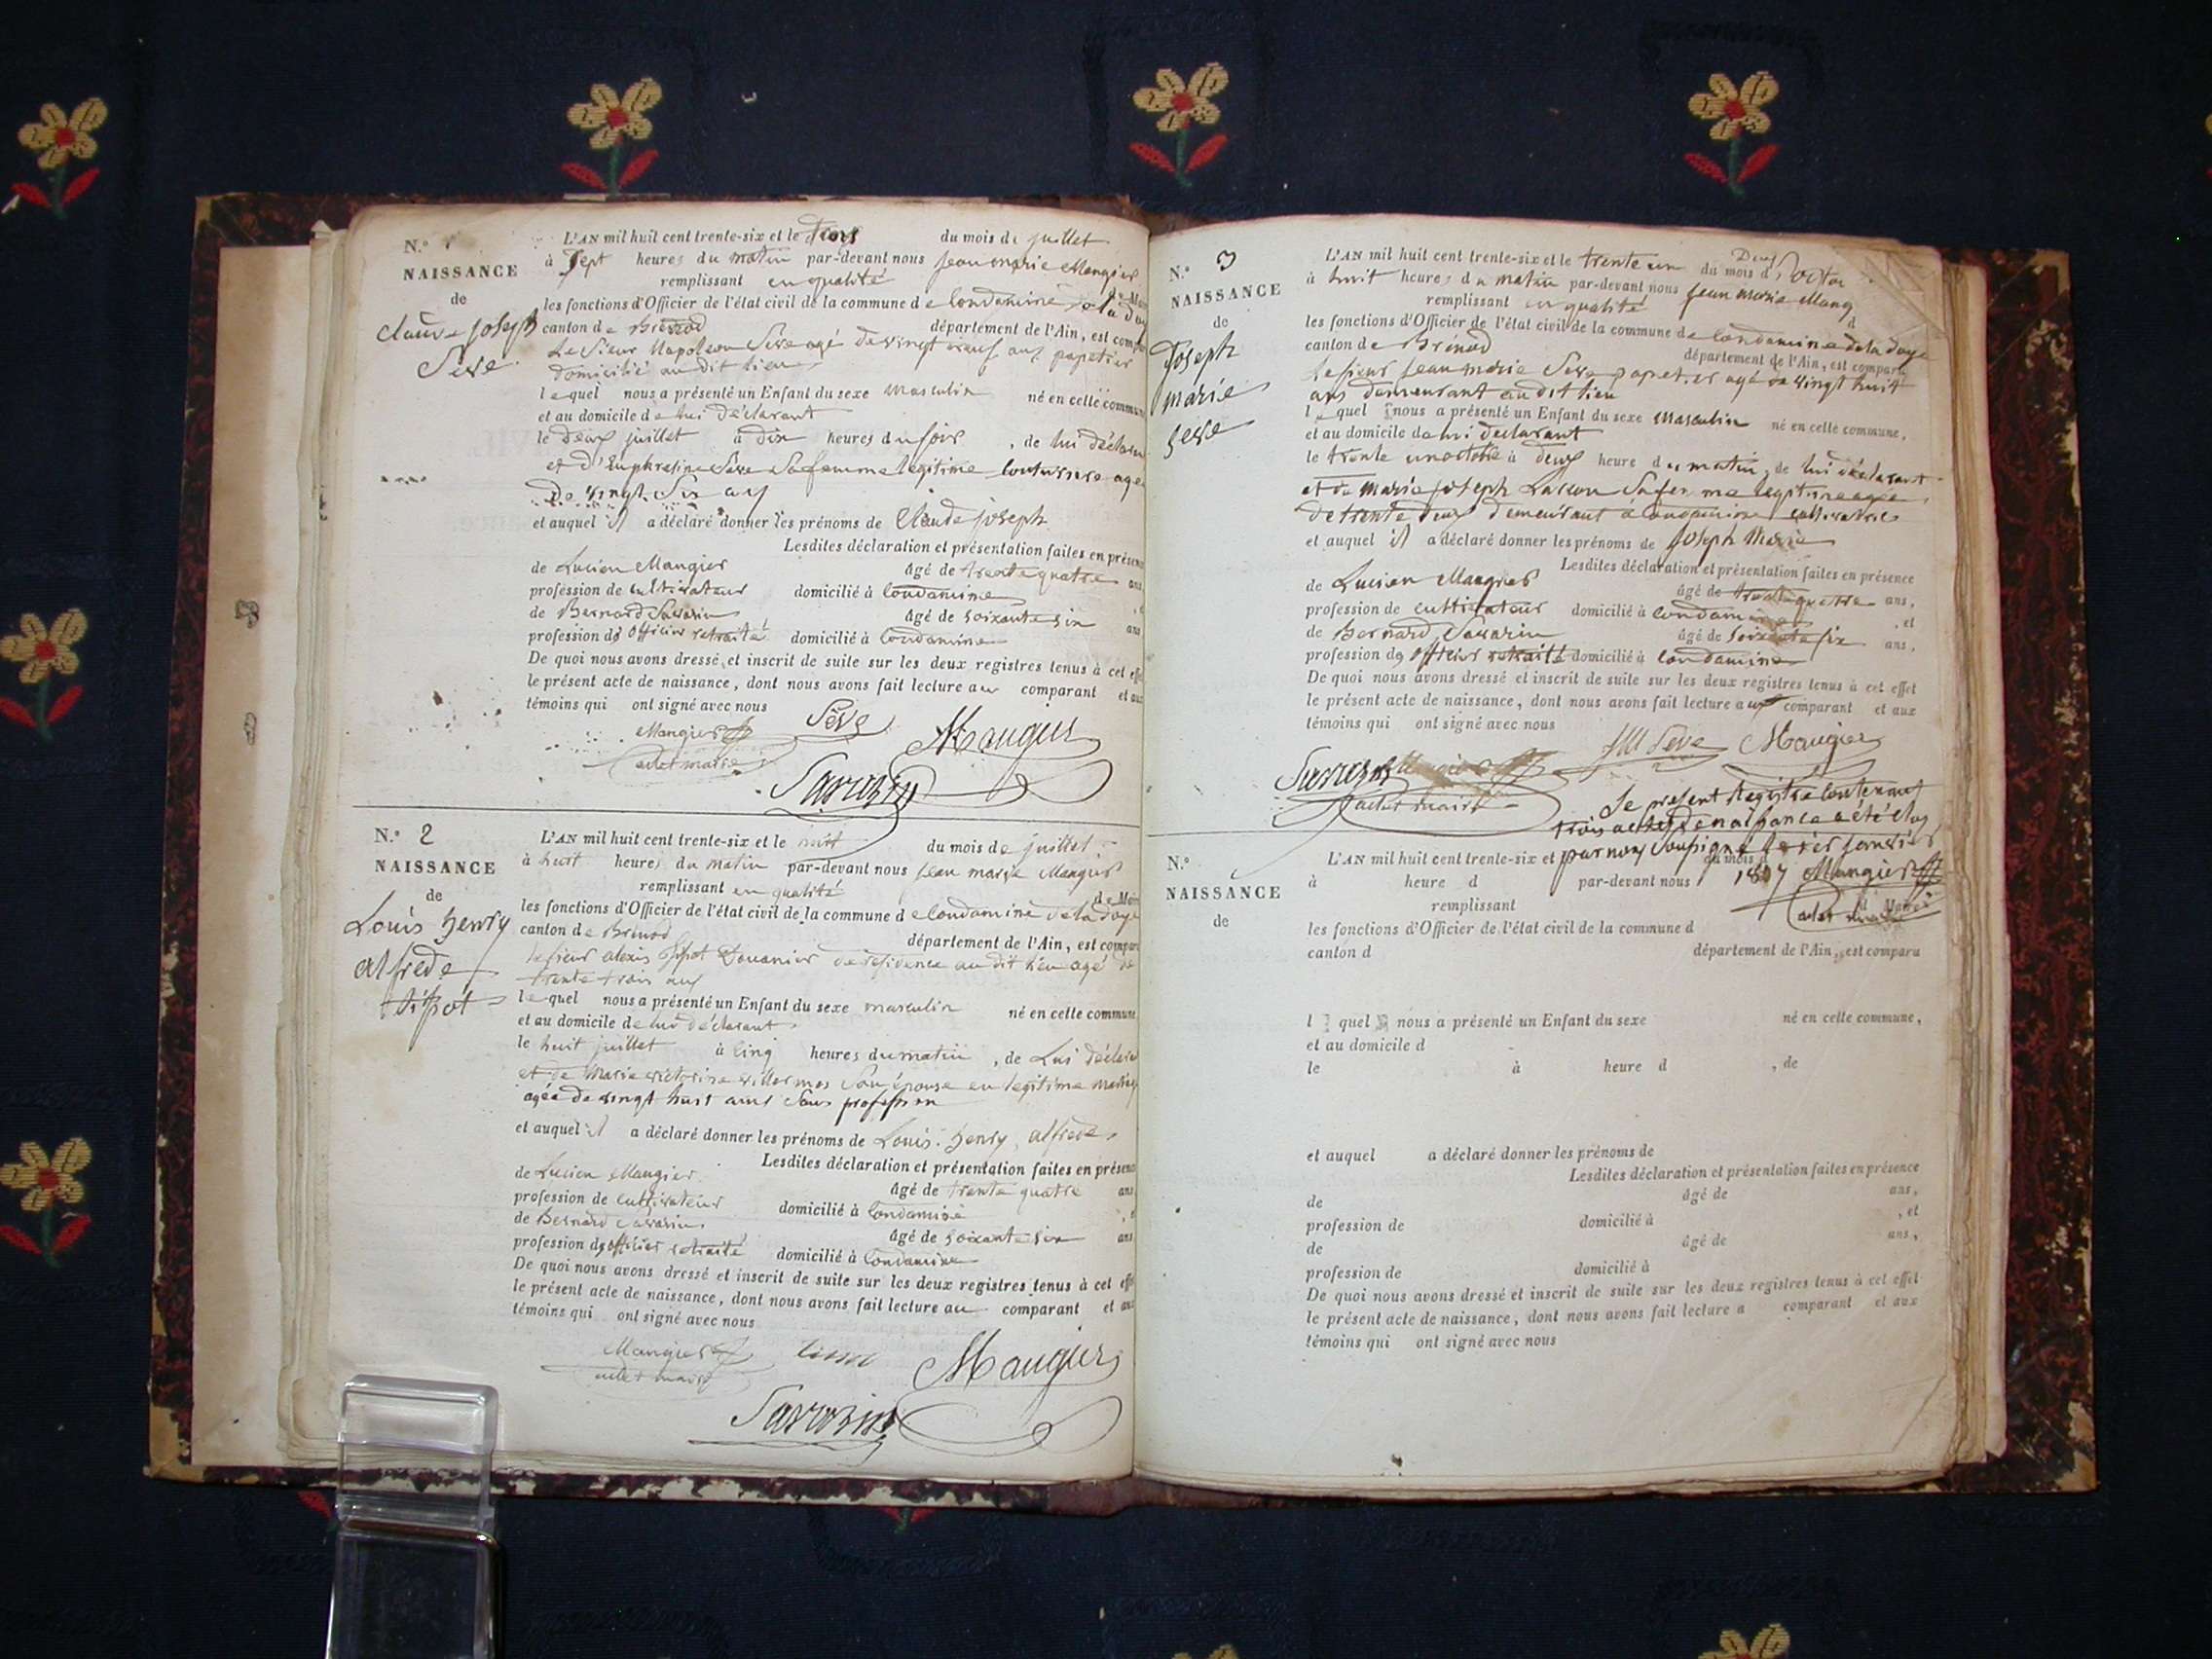 N.º 1
NAISSANCE
de
Claude joseph
Seve
L'AN mil huit cent trente-six et le trois du mois de juillet
à Sept heures du matin par-devant nous jean marie Mangier
remplissant en qualité d e Mai
les fonctions d'Officier de l'état civil de la commune d e Condamine de la doy
canton d e Brenod département de l'Ain, est compa
Le Sieur Napoleon Seve agé de vingt neuf ans papetier
domicilié au dit lieu
l e quel nous a présenté un Enfant du sexe masculin né en cette commun
et au domicile d e lui déclarant
le deux juillet à dix heures du soir , de lui déclara
et d'Euphrasine Seve Sa femme legitime couturiere agee
De vingt Six ans
et auquel il a déclaré donner les prénoms de Claude joseph
Lesdites déclaration et présentation faites en présen
de Lucien Mangier âgé de trente quatre ans
profession de cultivateur domicilié à Condamine
de Bernard Savarin âgé de soixante six ans
profession d' Officier retraité domicilié à Condamine
De quoi nous avons dressé et inscrit de suite sur les deux registres tenus à cet effe
le présent acte de naissance, dont nous avons fait lecture au comparant et aux
témoins qui ont signé avec nous
Mangier Sève Mangier
adet maire
Savarin
N.º 2
NAISSANCE
de
Louis henry
alfrede
tipot
L'AN mil huit cent trente-six et le huit du mois de juillet
à huit heures du matin par-devant nous jean marie Mangier
remplissant en qualité d e Mai
les fonctions d'Officier de l'état civil de la commune d e Condamine de la doye
canton d e Brenod département de l'Ain, est compar
le sieur alexis tipot Douanier de residence au dit lieu agé de
trente trois ans
l e quel nous a présenté un Enfant du sexe masculin né en cette commune
et au domicile d e lui déclarant
le huit juillet à cinq heures du matin , de Lui déclara
et de Marie victorine villermos Son épouse en legitime mariag
agée de vingt huit ans Sans profession
et auquel il a déclaré donner les prénoms de Louis henry alfrede
Lesdites déclaration et présentation faites en présenc
de Lucien Mangier âgé de trente quatre ans
profession de cultivateur domicilié à Condamine
de Bernard Savarin âgé de soixante six ans
profession d' officier retraité domicilié à Condamine
De quoi nous avons dressé et inscrit de suite sur les deux registres tenus à cet effe
le présent acte de naissance, dont nous avons fait lecture au comparant et aux
témoins qui ont signé avec nous
Mangier Mangier
adet maire
Savarin
N.º 3
NAISSANCE
de
Joseph
marie
seve
L'AN mil huit cent trente-six et le trente un du mois d' octob
à huit heures du matin par-devant nous jean marie Mang
remplissant en qualité d
les fonctions d'Officier de l'état civil de la commune d e Condamine de la doye
canton d e Brenod département de l'Ain, est comparu
le sieur jean marie Seve papetier agé de vingt huit
ans demeurant au dit lieu
l e quel nous a présenté un Enfant du sexe masculin né en cette commune,
et au domicile de lui declarant
le trente un octobre à deux heure du matin, de lui déclarant
et de marie joseph Sa femme legitime agee
de trente deux demeurant a Condamine cultivatrice
et auquel il a déclaré donner les prénoms de joseph Marie
Lesdites déclaration et présentation faites en présence
de Lucien Mangier âgé de trente quatre ans,
profession de cultivateur domicilié à Condamine , et
de Bernard Savarin âgé de soixante six ans,
profession d' officier retraité domicilié à Condamine
De quoi nous avons dressé et inscrit de suite sur les deux registres tenus à cet effet
le présent acte de naissance, dont nous avons fait lecture au comparant et aux
témoins qui ont signé avec nous
Savarin Mangier JM Seve Mangier
adet maire
Le present Registre contenant
trois actes de naissance a été clos
par nous Soussigné le 1er janvier
1837 Mangier
adet maire
N.º
NAISSANCE
de
L'AN mil huit cent trente-six et du mois d
à heure d par-devant nous
remplissant d Maire
les fonctions d'Officier de l'état civil de la commune d
canton d département de l'Ain, est comparu
l quel nous a présenté un Enfant du sexe né en cette commune,
et au domicile d
le à heure d , de
et auquel a déclaré donner les prénoms de
Lesdites déclaration et présentation faites en présence
de âgé de ans,
profession de domicilié à , et
de âgé de ans,
profession de domicilié à
De quoi nous avons dressé et inscrit de suite sur les deux registres tenus à cet effet
le présent acte de naissance, dont nous avons fait lecture a comparant et aux
témoins qui ont signé avec nous